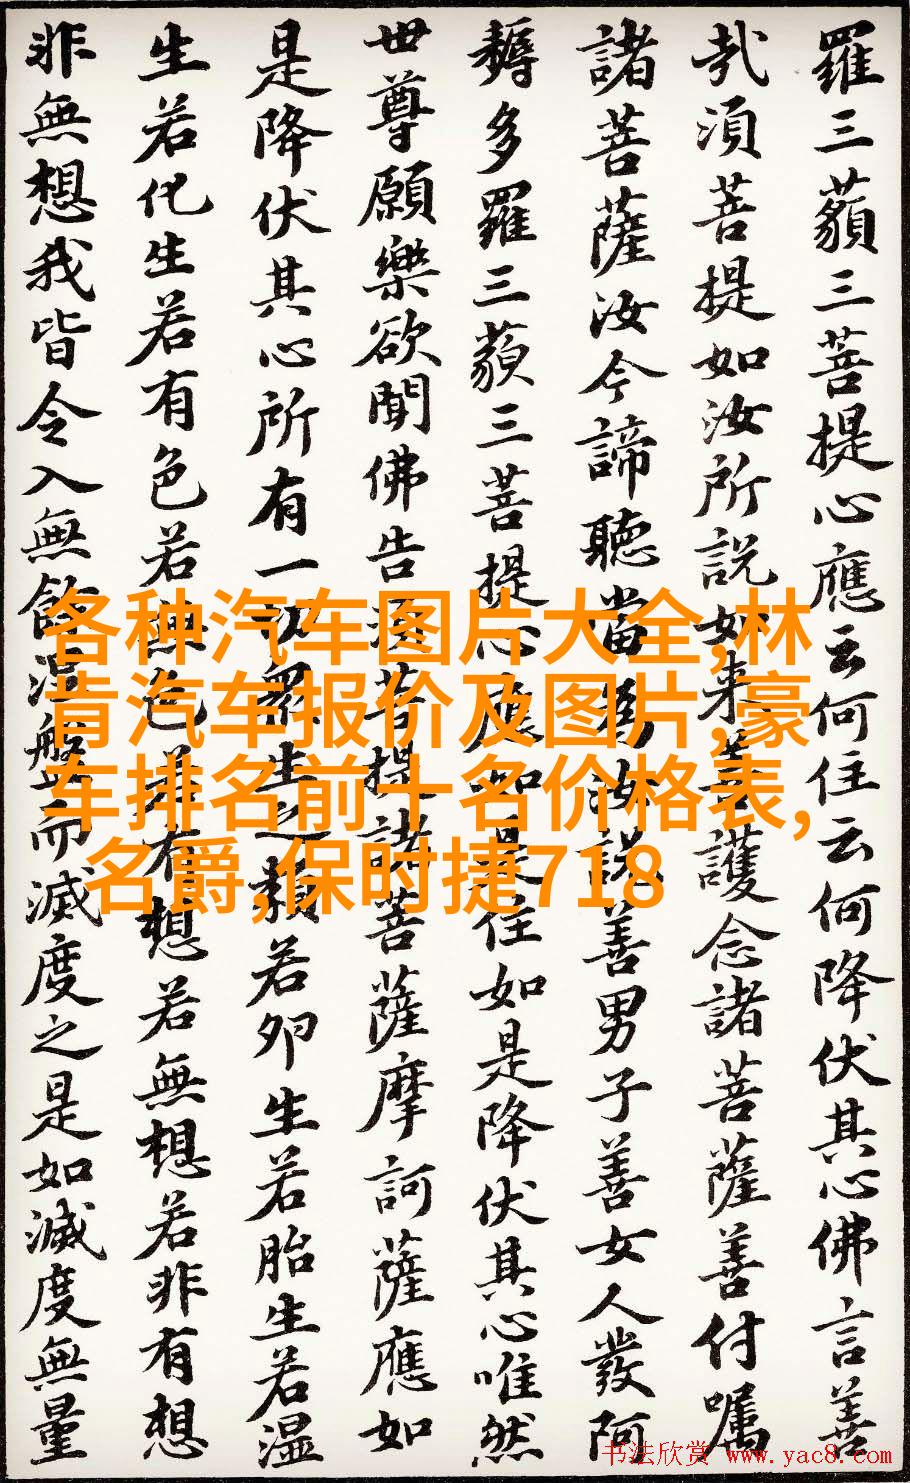 羅三藐三菩提心應云何住云何降伏其心佛言善
哉須菩提如汝所説如來善護念諸菩薩善付嘱
諸菩薩汝今諦聽當為汝説善男子善女人發阿
耨多羅三藐三菩提心應如是住如是降伏其心唯然
世尊願樂欲聞佛告須菩提諸菩薩摩訶薩應如
是降伏其心所有一切眾生之類若卵生若胎生若湿
生若化生若有色若無色若有想若無想若非有想
非無想我皆令入無餘涅盤而滅度之是如滅度無量
各种汽车图片大全,林
肯汽车报价及图片,豪
车排名前十名价格表,
名爵,保时捷718
书法欣赏 www.yac8.com